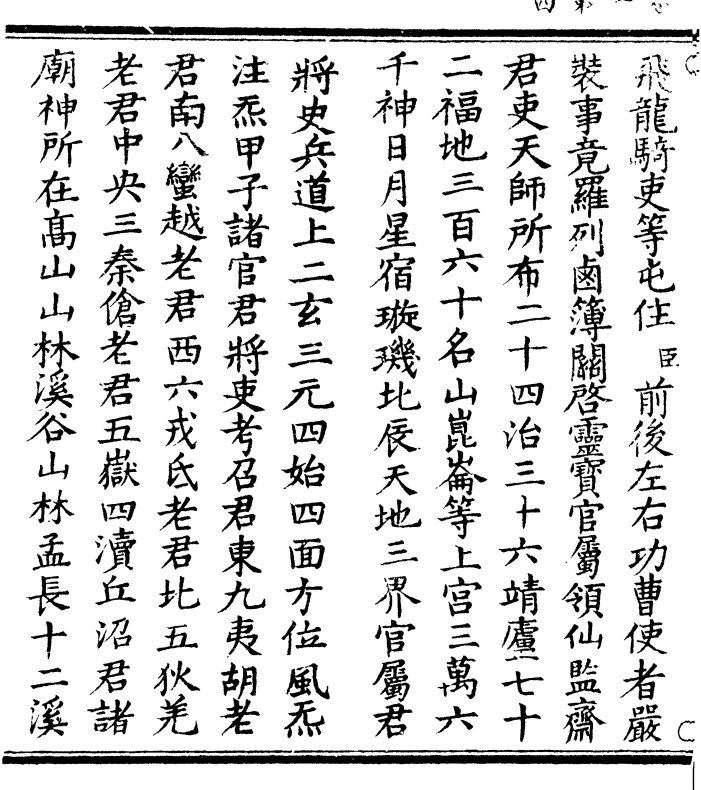 飛龍騎吏等屯住臣前後左右功曹使者嚴
裝事竟羅列鹵簿關啓靈寶官屬領仙監齋
君吏天師所布二十四治三十六靖廬七十
二福地三百六十名山崑崙等上宮三萬六
千神日月星宿璇璣北辰天地三界官屬君
將吏兵道上二玄三元四始四面方位風炁
注炁甲子諸官君將吏考召君東九夷胡老
君南八蠻越老君西六戎氐老君北五狄羌
老君中央三秦傖老君五嶽四瀆丘沼君諸
廟神所在高山山林溪谷山林孟長十二溪